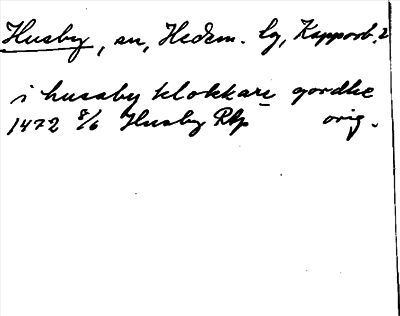 Husby, sn, Hedem. lg, Kopparb. l
i husaby klokkare gordhe
1472 8/6 Husby Rbp orig.